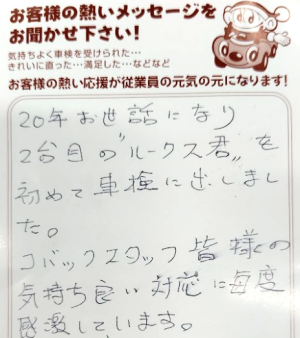 お客様の熱いメッセージを
お聞かせ下さい!
気持ちよく車検を受けられた…
きれいに直った…満足した…などなど
お客様の熱い応援が従業員の元気の元になります!
20年お世話になり
2台目の"ルークス君"を
初めて車検に出しまし
た。
コバックスタッフ皆様の
気持ち良い対応に毎度
感激しています。